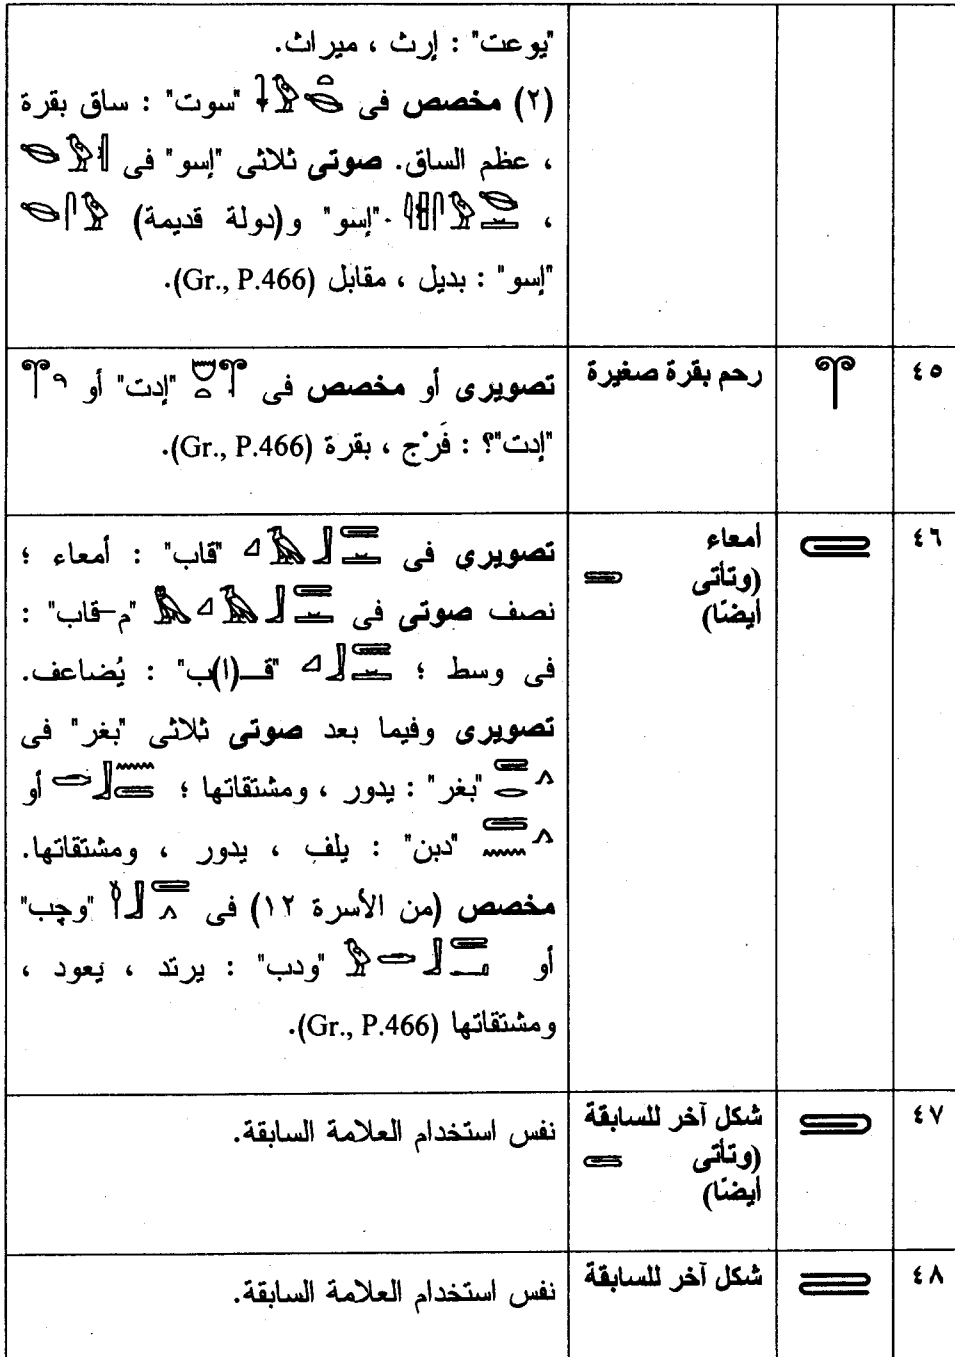 "يوعت" : إرث ، ميراث.
(٢) مخصص فى "سوت" : ساق بقرة
، عظم الساق. صوتى ثلاثى "إسو" فى
، "إسو" و(دولة قديمة)
"إسو" : بديل ، مقابل (Gr., P.466).
٤٥
رحم بقرة صغيرة
تصويرى أو مخصص فى "إدت" أو
"إدت"؟ : فَرْج ، بقرة (Gr., P.466).
٤٦
أمعاء
(وتأتى
أيضًا)
تصويرى فى "قاب" : أمعاء ؛
نصف صوتى فى "م-قاب" :
فى وسط ؛ "قـ(ا)ب" : يُضاعف.
تصويرى وفيما بعد صوتى ثلاثى "بغر" فى
"بغر" : يدور ، ومشتقاتها ؛ أو
"دبن" : يلف ، يدور ، ومشتقاتها.
مخصص (من الأسرة ١٢) فى "وچب"
أو "ودب" : يرتد ، يعود ،
ومشتقاتها (Gr., P.466).
٤٧
شكل آخر للسابقة
(وتأتى
أيضًا)
نفس استخدام العلامة السابقة.
٤٨
شكل آخر للسابقة
نفس استخدام العلامة السابقة.